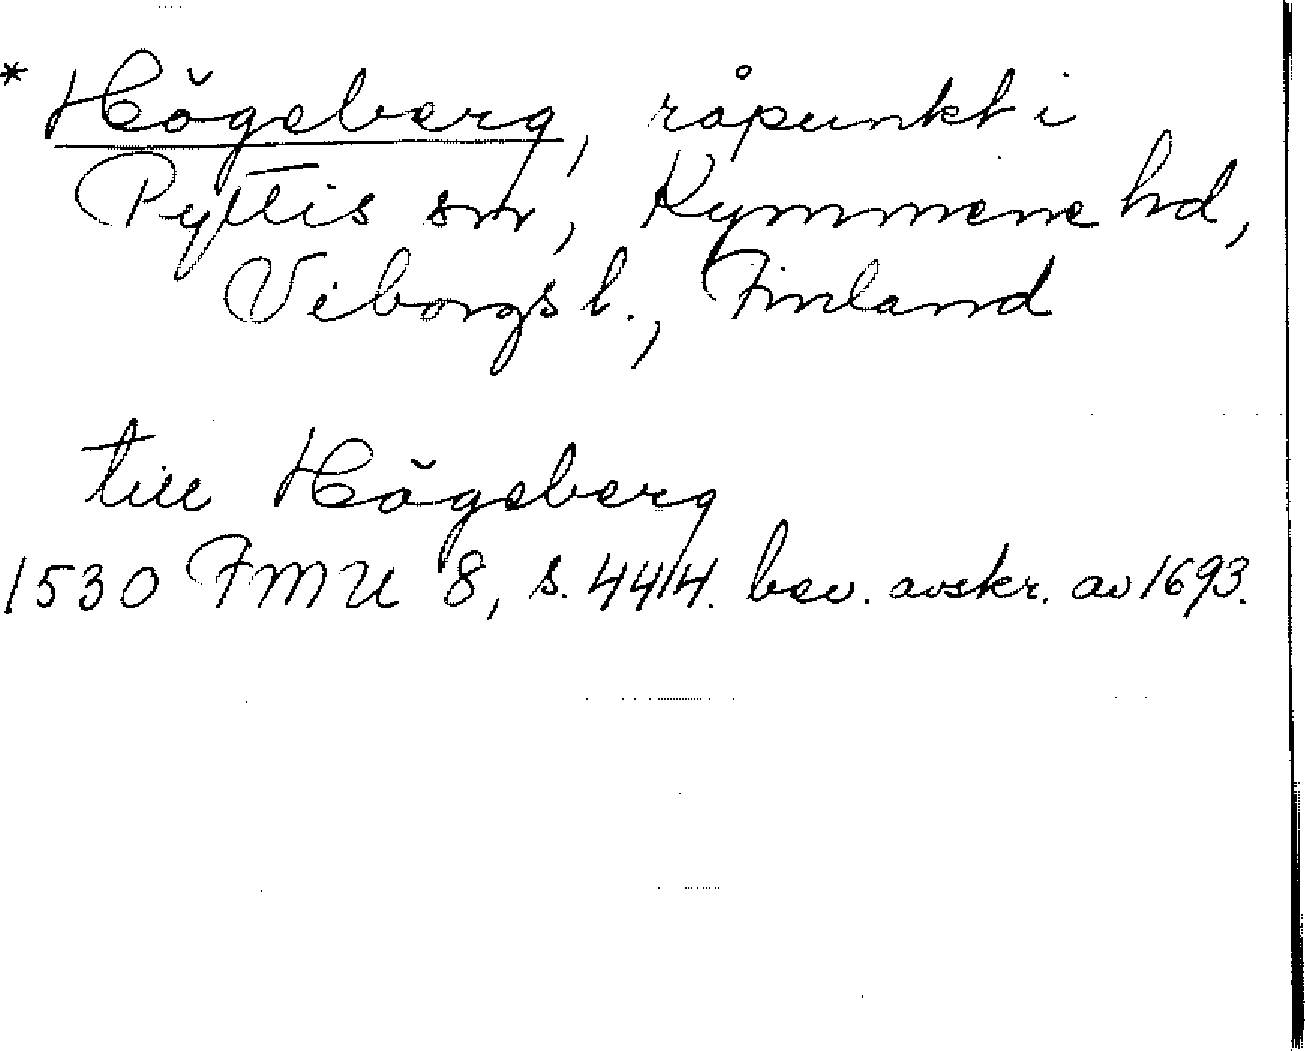 * Högeberg, råpunkt i
Pyttis sn, Kymmene hd,
Viborgs l., Finland
till Högeberg
1530 FMU 8, s. 444. bev. avskr. av 1693.